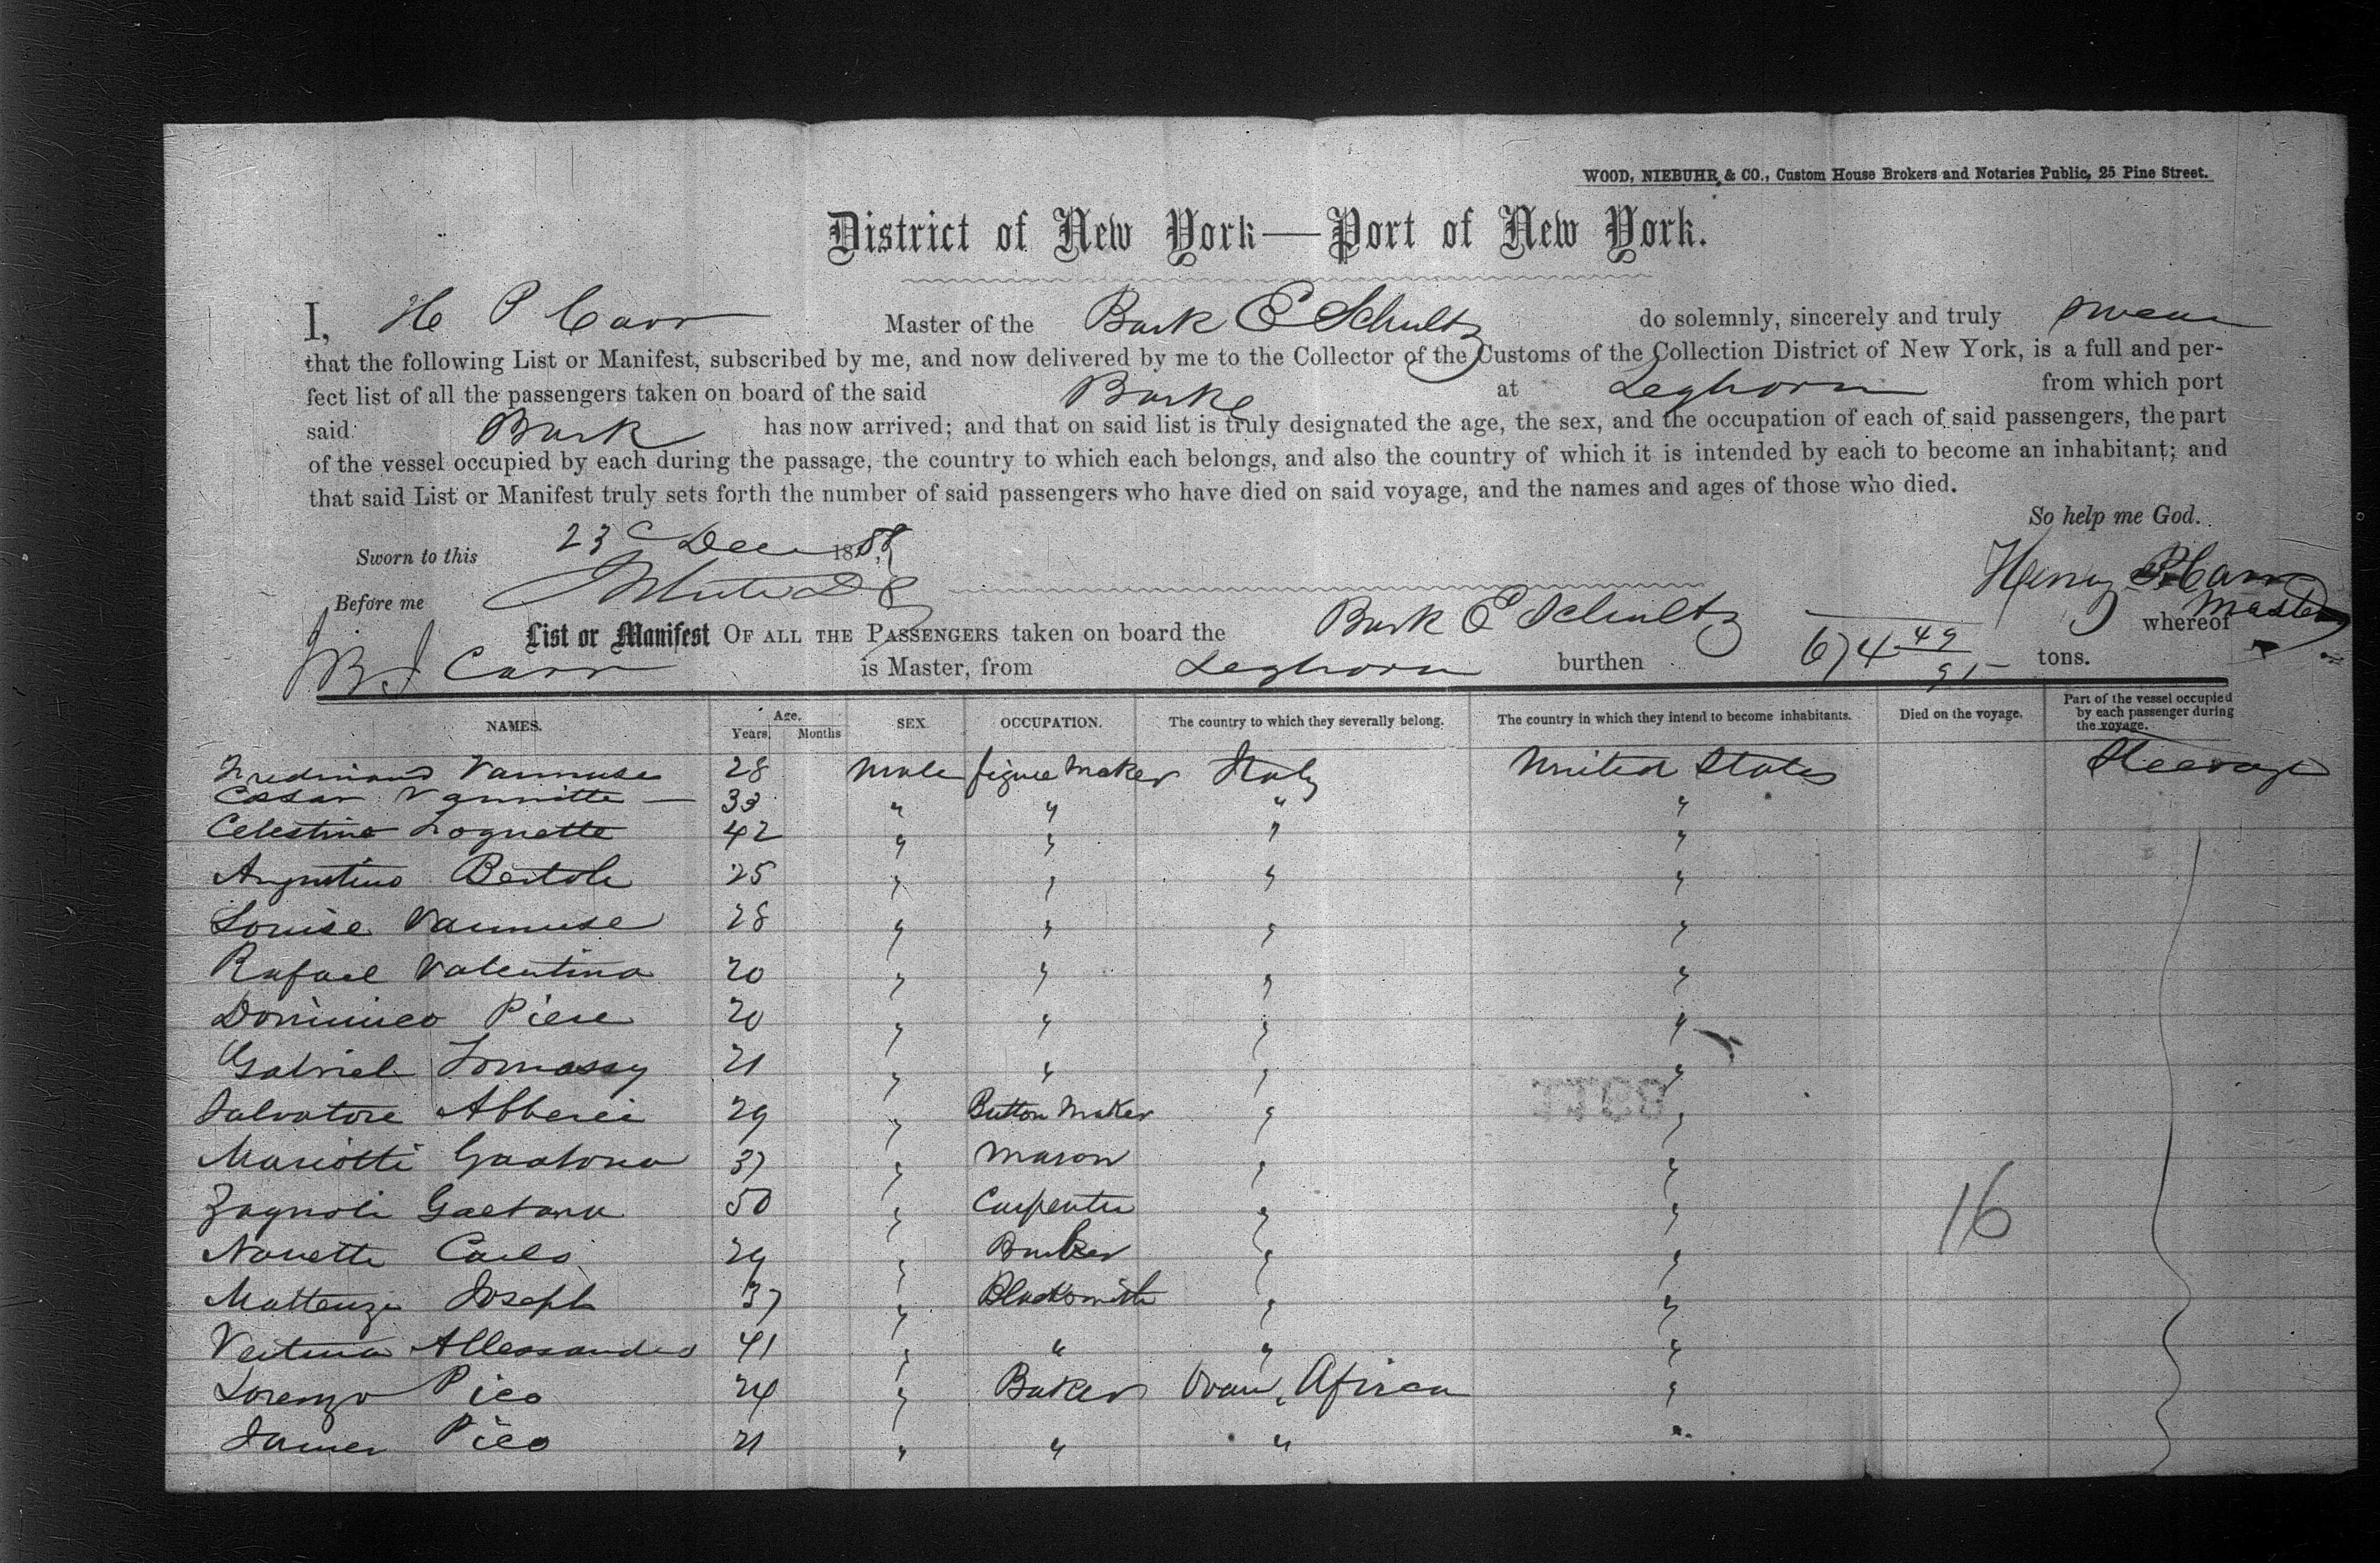 WOOD, NIEBUHR & CO., Custom House Brokers and Notaries Public, 25 Pine Street.
District of New York—Port of New York.
I, H P Carr Master of the Bark E Schultz do solemnly, sincerely and truly swear
that the following List or Manifest, subscribed by me, and now delivered by me to the Collector of the Customs of the Collection District of New York, is a full and per-
fect list of all the passengers taken on board of the said Bark at Leghorn from which port
said Bark has now arrived; and that on said list is truly designated the age, the sex, and the occupation of each of said passengers, the part
of the vessel occupied by each during the passage, the country to which each belongs, and also the country of which it is intended by each to become an inhabitant; and
that said List or Manifest truly sets forth the number of said passengers who have died on said voyage, and the names and ages of those who died.
So help me God.
Sworn to this 23 Dec 1858
Henry P. Carr
Master
Before me
List or Manifest OF ALL THE PASSENGERS taken on board the Bark E Schultz whereof
Carr is Master, from Leghorn burthen 674 49/95 tons.
NAMES. Age. Years. Months SEX. OCCUPATION. The country to which they severally belong. The country in which they intend to become inhabitants. Died on the voyage. Part of the vessel occupied by each passenger during the voyage.
Vannuse 28 Male figure Maker Italy United States Steerage
Vannitte — 33 " " " "
Celestino Lognette 42 " " " "
Augustino Bertole 25 " " " "
Louise Vannuse 28 " " " "
Rafael Valentino 20 " " " "
Dominico Piere 20 " " " "
Gabriel Tomassy 21 " " " "
Salvatore Abberei 29 " Button Maker " "
Mariotti Gaatona 37 " Mason " "
Zagnoli Gaetana 50 " Carpenter " "
Nanette Carlo 29 " " "
Mattenze Joseph 37 " Blacksmith " "
Allessandro 41 " " " "
Lorenzo Pico 24 " Baker Oran, Africa "
James Pico 21 " " " "
16